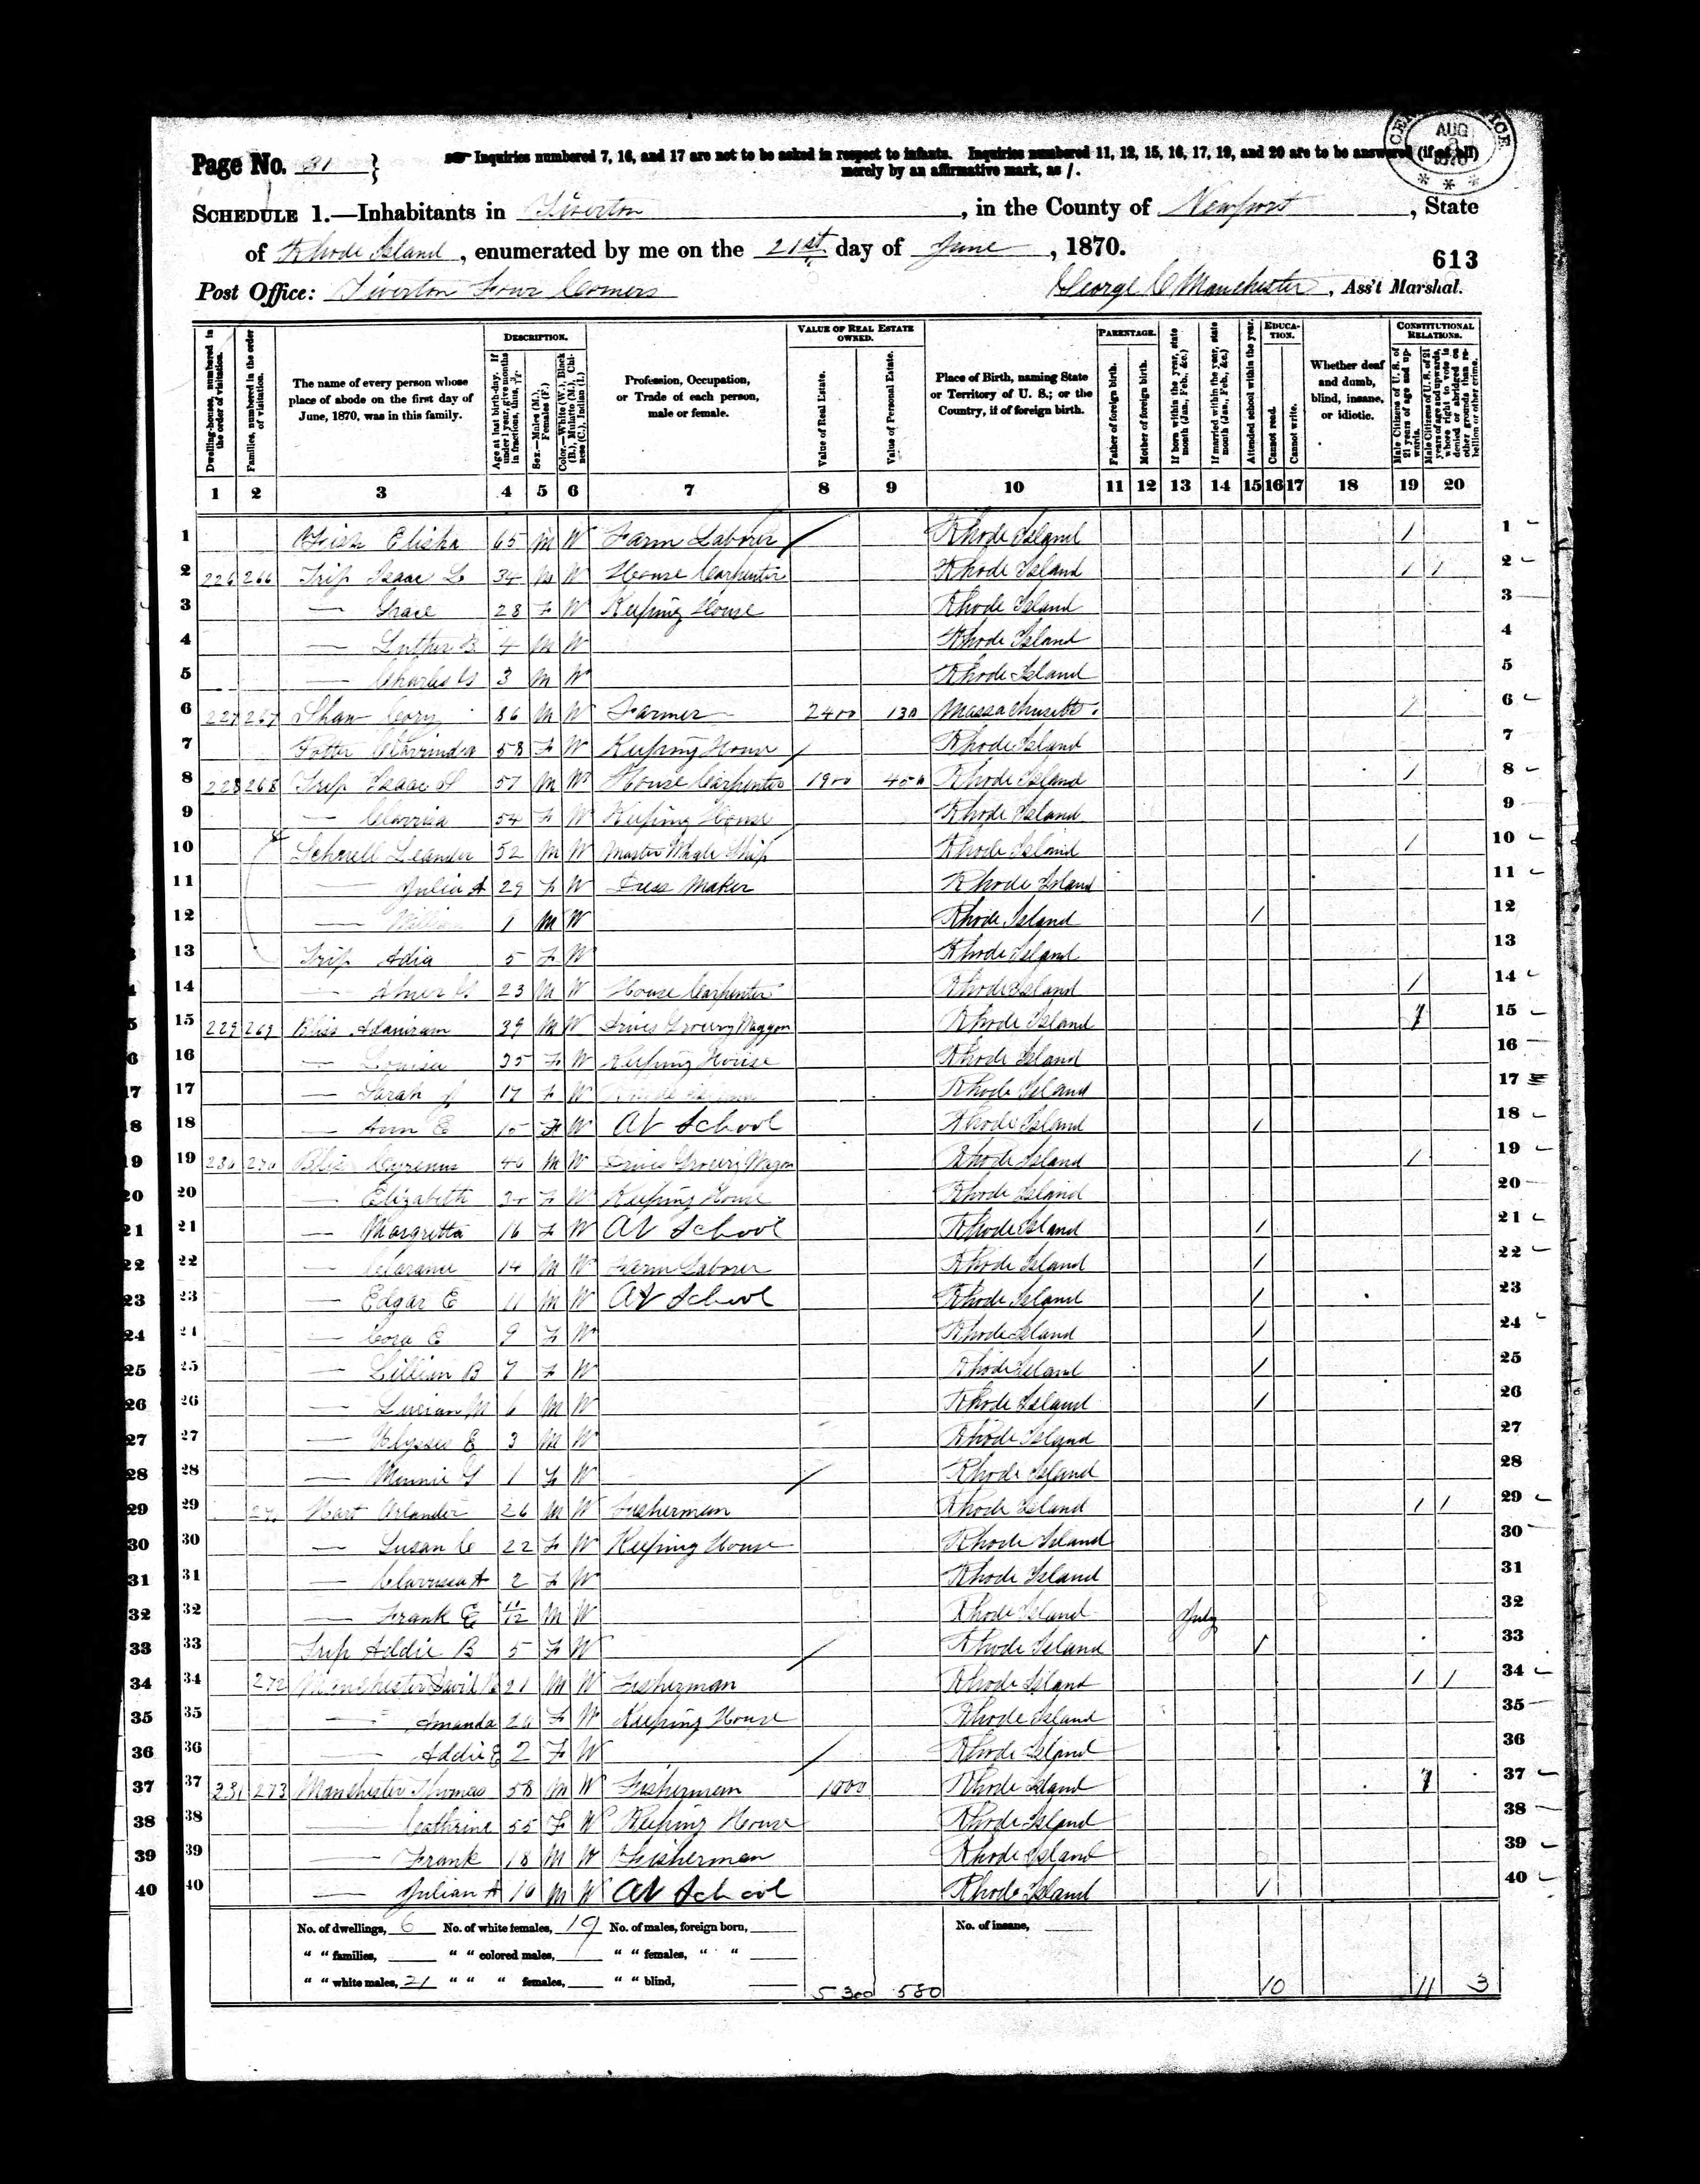 Page No. 31
Inquiries numbered 7, 16, and 17 are not to be asked in respect to infants. Inquiries numbered 11, 12, 15, 16, 17, 19, and 20 are to be answered (if at all)
merely by an affirmative mark, as /.
AUG
* * *
SCHEDULE 1.—Inhabitants in Tiverton, in the County of Newport, State
of Rhode Island, enumerated by me on the 21st day of June, 1870.
613
Post Office: Tiverton Four Corners George C Manchester, Ass't Marshal.
Dwelling-houses, numbered in the order of visitation.
Families, numbered in the order of visitation.
The name of every person whose place of abode on the first day of June, 1870, was in this family.
DESCRIPTION.
Age at last birth-day. If under 1 year, give months in fractions, thus, 3/12
Sex.—Males (M.), Females (F.)
Color.—White (W.), Black (B.), Mulatto (M.), Chinese (C.), Indian (I.)
Profession, Occupation, or Trade of each person, male or female.
VALUE OF REAL ESTATE OWNED.
Value of Real Estate.
Value of Personal Estate.
Place of Birth, naming State or Territory of U. S.; or the Country, if of foreign birth.
PARENTAGE.
Father of foreign birth.
Mother of foreign birth.
If born within the year, state month (Jan., Feb., &c.)
If married within the year, state month (Jan., Feb., &c.)
Attended school within the year.
EDUCATION.
Cannot read.
Cannot write.
Whether deaf and dumb, blind, insane, or idiotic.
CONSTITUTIONAL RELATIONS.
Male Citizens of U. S. of 21 years of age and upwards.
Male Citizens of U. S. of 21 years of age and upwards, whose right to vote is denied or abridged on other grounds than rebellion or other crime.
1 2 3 4 5 6 7 8 9 10 11 12 13 14 15 16 17 18 19 20
1 Elisha 65 M W Farm Laborer Rhode Island / 1
2 226 266 Trip Isaac L 34 M W House Carpenter Rhode Island / / 2
3 — Grace 28 F W Keeping House Rhode Island 3
4 — Luther B 4 M W Rhode Island 4
5 — Charles G 3 M W Rhode Island 5
6 227 267 Shaw Cory 86 M W Farmer 2400 130 Massachusetts / 6
7 Potter Clarrinda 58 F W Keeping House Rhode Island 7
8 228 268 Trip Isaac S 57 M W House Carpenter 1900 450 Rhode Island / 8
9 — Clarrisa 54 F W Keeping House Rhode Island 9
10 Leander 52 M W Master Whale Ship Rhode Island / 10
11 — Julia A 29 F W Dress Maker Rhode Island 11
12 — William 1 M W Rhode Island / 12
13 Trip Adia 5 F W Rhode Island 13
14 — Abner G 23 M W House Carpenter Rhode Island / 14
15 229 269 Bliss Adaniram 39 M W Drives Grocery Waggon Rhode Island 1 15
16 — Louisa 35 F W Keeping House Rhode Island 16
17 — Sarah J 17 F W Rhode Island 17
18 — Ann E 15 F W At School Rhode Island / 18
19 230 270 Bliss Cyrenus 40 M W Drives Grocery Wagon Rhode Island / 19
20 — Elizabeth F W Keeping House Rhode Island 20
21 — Margretta 16 F W At School Rhode Island / 21
22 — Clarance 14 M W Farm Laborer Rhode Island / 22
23 — Edgar E 11 M W At School Rhode Island / 23
24 — Cora E 9 F W Rhode Island / 24
25 — Lillian B 7 F W Rhode Island / 25
26 — Lucian M 6 M W Rhode Island / 26
27 — Ulysses E 3 M W Rhode Island 27
28 — Minnie G 1 F W Rhode Island 28
29 271 Hart Orlander 26 M W Fisherman Rhode Island / / 29
30 — Susan C 22 F W Keeping House Rhode Island 30
31 — Clarrissa A 2 F W Rhode Island 31
32 — Frank E 11/12 M W Rhode Island July 32
33 Trip Addie B 5 F W Rhode Island / 33
34 272 Manchester David 21 M W Fisherman Rhode Island / / 34
35 — Amanda 20 F W Keeping House Rhode Island 35
36 — Addie E 2 F W Rhode Island 36
37 231 273 Manchester Thomas 58 M W Fisherman 1000 Rhode Island 1 37
38 — Cathrine 55 F W Keeping House Rhode Island 38
39 — Frank 18 M W Fisherman Rhode Island 39
40 — Julian A 16 M W At School Rhode Island / 40
No. of dwellings, 6 No. of white females, 19 No. of males, foreign born, No. of insane,
" " families, " " colored males, " " females, " "
" " white males, 21 " " " females, " " blind,
5300 580 10 11 3